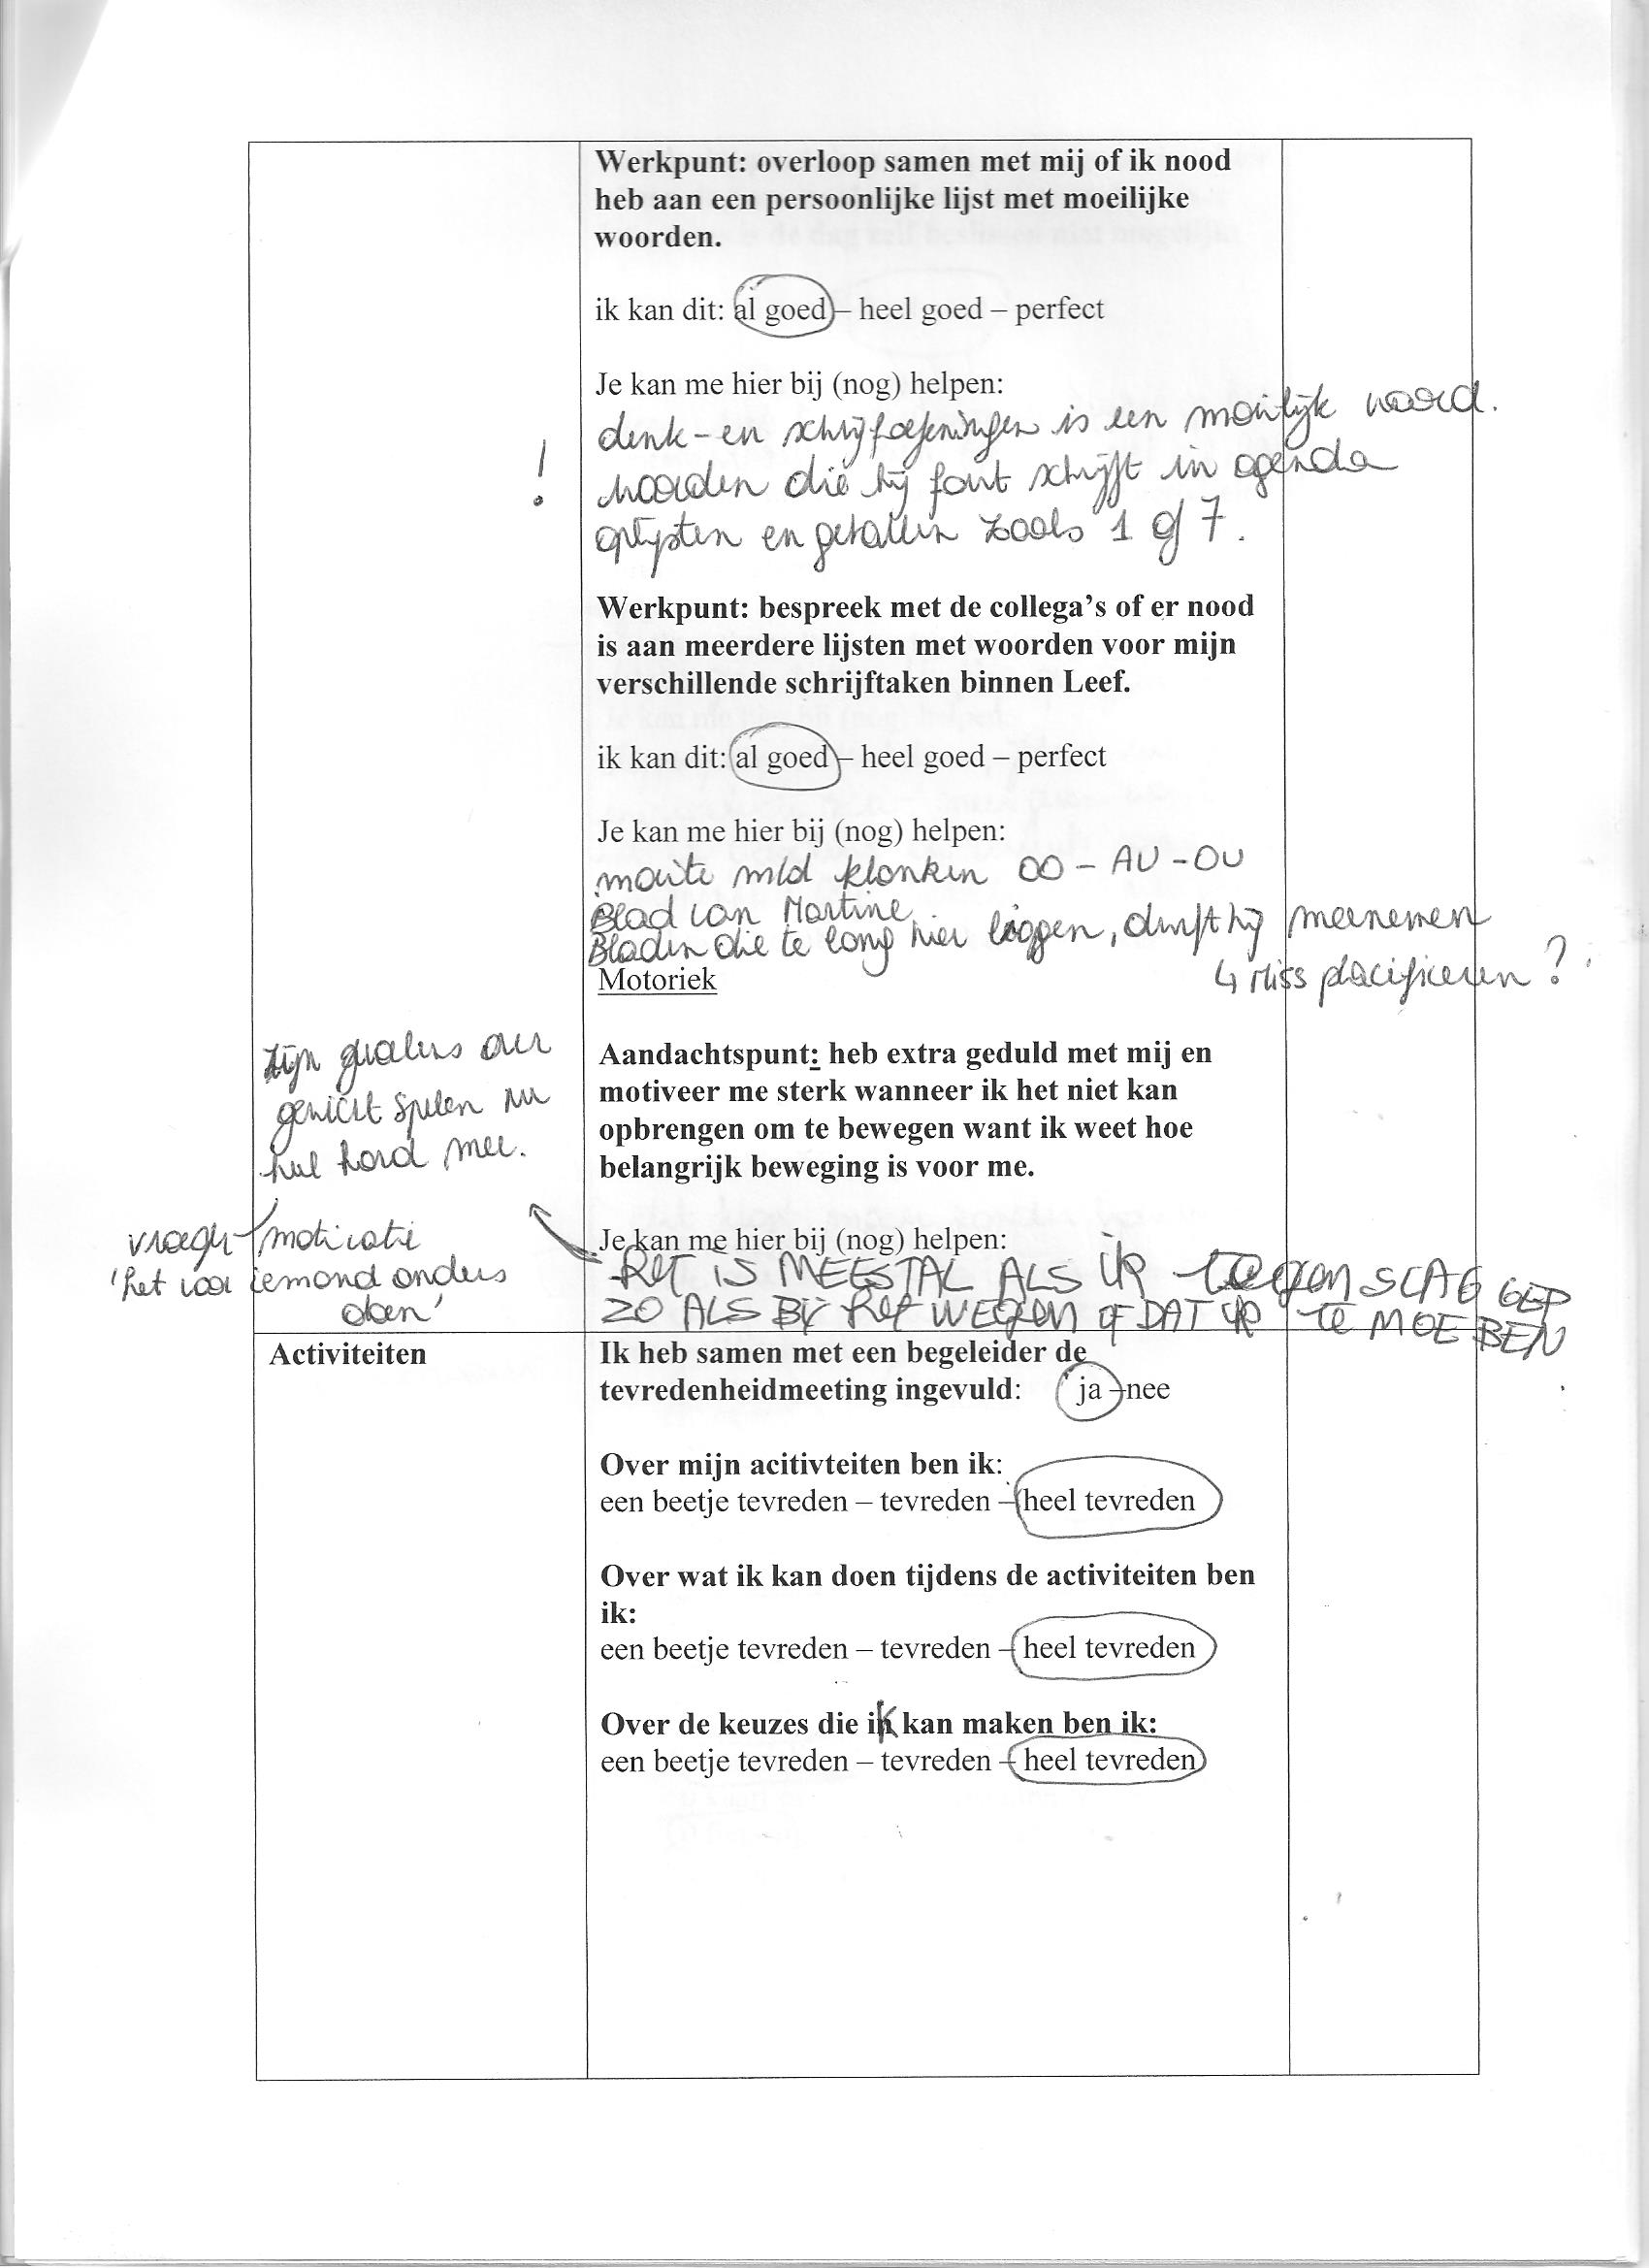 Werkpunt: overloop samen met mij of ik nood
heb aan een persoonlijke lijst met moeilijke
woorden.
ik kan dit: al goed – heel goed – perfect
Je kan me hier bij (nog) helpen:
denk- en schrijfoefeningen is een moeilijk woord.
! woorden die hij fout schrijft in agenda
oplijsten en getallen zoals 1 of 7.
Werkpunt: bespreek met de collega's of er nood
is aan meerdere lijsten met woorden voor mijn
verschillende schrijftaken binnen Leef.
ik kan dit: al goed – heel goed – perfect
Je kan me hier bij (nog) helpen:
moeite md klanken OO - AU - OU
Blad van Martine
Bladen die te lang hier liggen, durft hij meenemen
↳ miss placificeren?
Motoriek
Aandachtspunt: heb extra geduld met mij en
motiveer me sterk wanneer ik het niet kan
opbrengen om te bewegen want ik weet hoe
belangrijk beweging is voor me.
zijn gevoelens over
gewicht spelen nu
heel hard mee.
vragen motivatie
'het voor iemand anders
doen'
Je kan me hier bij (nog) helpen:
Het IS MEESTAL ALS ik tegenSLAG
ZO ALS Bij Het WEGEN OF DAT ik TE MOE BEN
Activiteiten
Ik heb samen met een begeleider de
tevredenheidmeeting ingevuld: ja –nee
Over mijn acitivteiten ben ik:
een beetje tevreden – tevreden – heel tevreden
Over wat ik kan doen tijdens de activiteiten ben
ik:
een beetje tevreden – tevreden – heel tevreden
Over de keuzes die ik kan maken ben ik:
een beetje tevreden – tevreden – heel tevreden